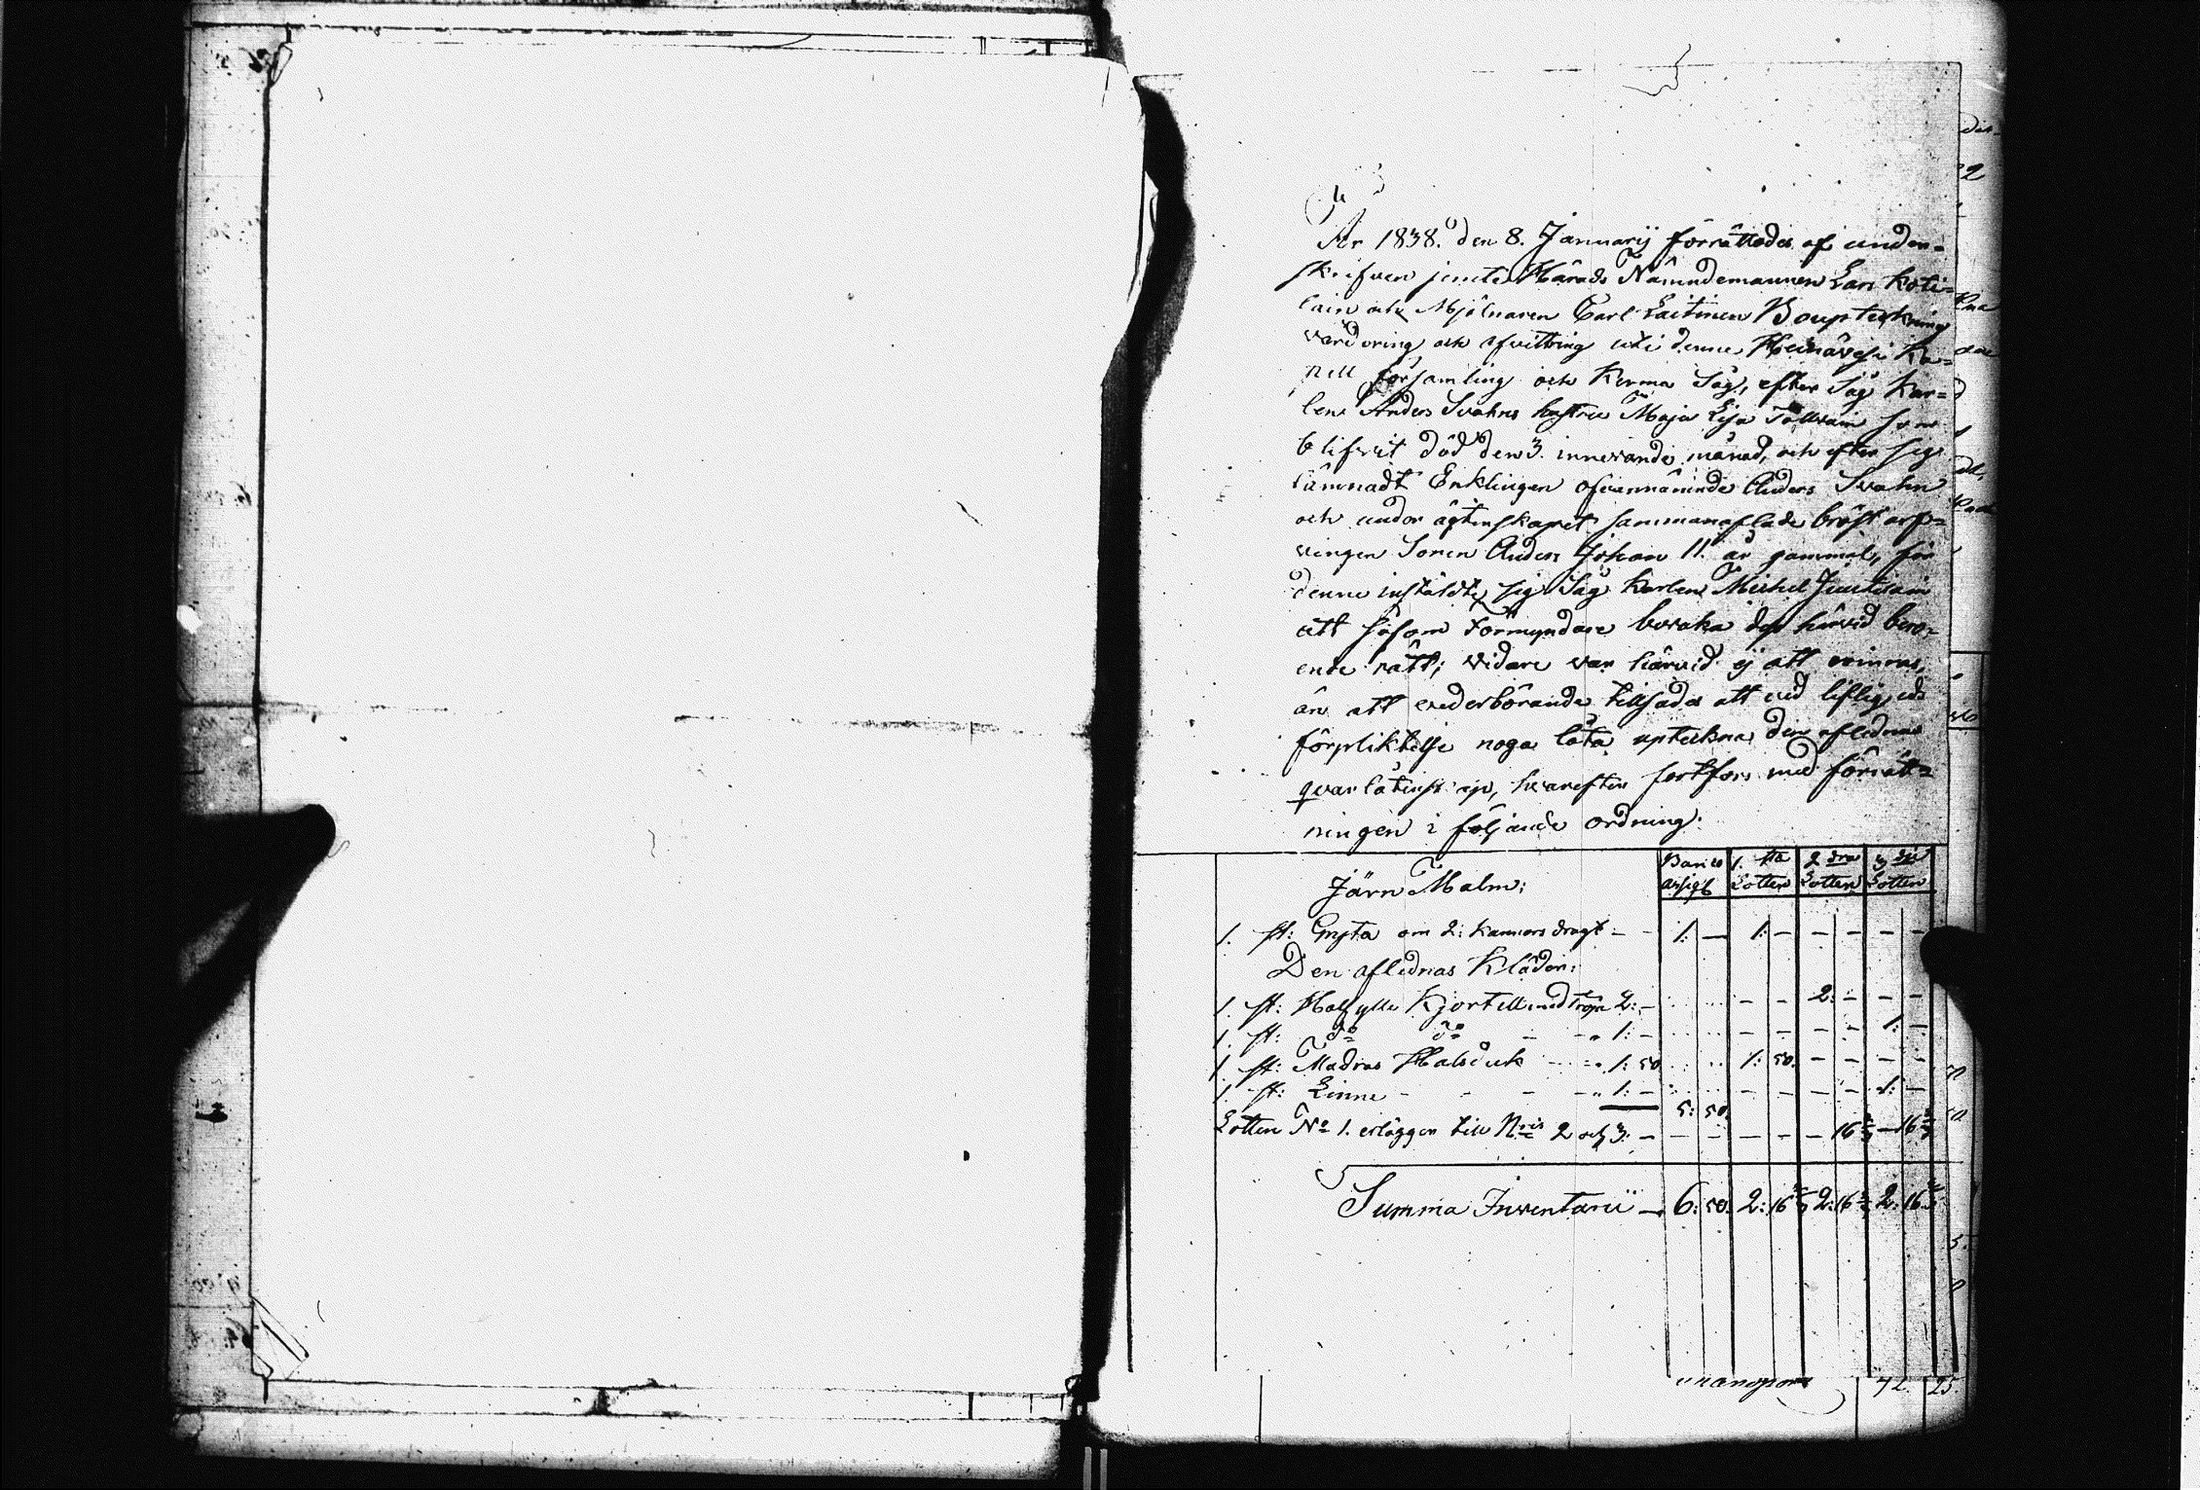 År 1838. den 8. Januarij förrättades af under-
skrifven jemte Härads Nämndemannen Lars Koti-
lain och Mjölnaren Carl Laitinen Boupteckning
värdering och afvittring uti denne Heinävesi Ka-
pell församling och Kerma Såg, efter Såg Kar-
len Anders Svahns hustru Maja Lisa Tollvain som
blifvit död den 3. innevarande månad, och efter sig
lämnadt Enklingen ofvannämnde Anders Svahn
och under ägtenskapet sammanaflade bröst arf-
vingen Sonen Anders Johan 11. år gammal, för
denne instäldte sig Såg Karlen Michel
att såsom Förmyndare bevaka dess härvid bero-
ende rätt; vidare var härvid ej att minnas,
än att vederbörande tillsades att vid liflig eds
förpliktelse noga låta upteckna den aflednes
qvarlåtenskap, hvarefter fortfors med förrätt-
ningen i följande ordning:
Banco 1. sta 2 dra 3 dje
Järn Malm: assigt Lotten Lotten Lotten
1. st: Gryta om 2: kannors dragt - - 1: - 1: - - - - -
Den aflednas Kläder:
1. st: Halfylle Kjortell med tröja 2: - - - 2: - - -
1. st: do do - - " 1: - - - - - 1: -
1. st: Madras Halsduk - - " 1: 50 1: 50. - - - -
1. st: Linne - - - - " 1: - 5: 50. - - - - 1: -
Lotten No 1. erlägger till N:ris 2 och 3: - - - - - - 16 2/3 - 16 2/3
Summa Inventarii - 6: 50. 2: 16 2/3 2: 16 2/3 2: 16 2/3